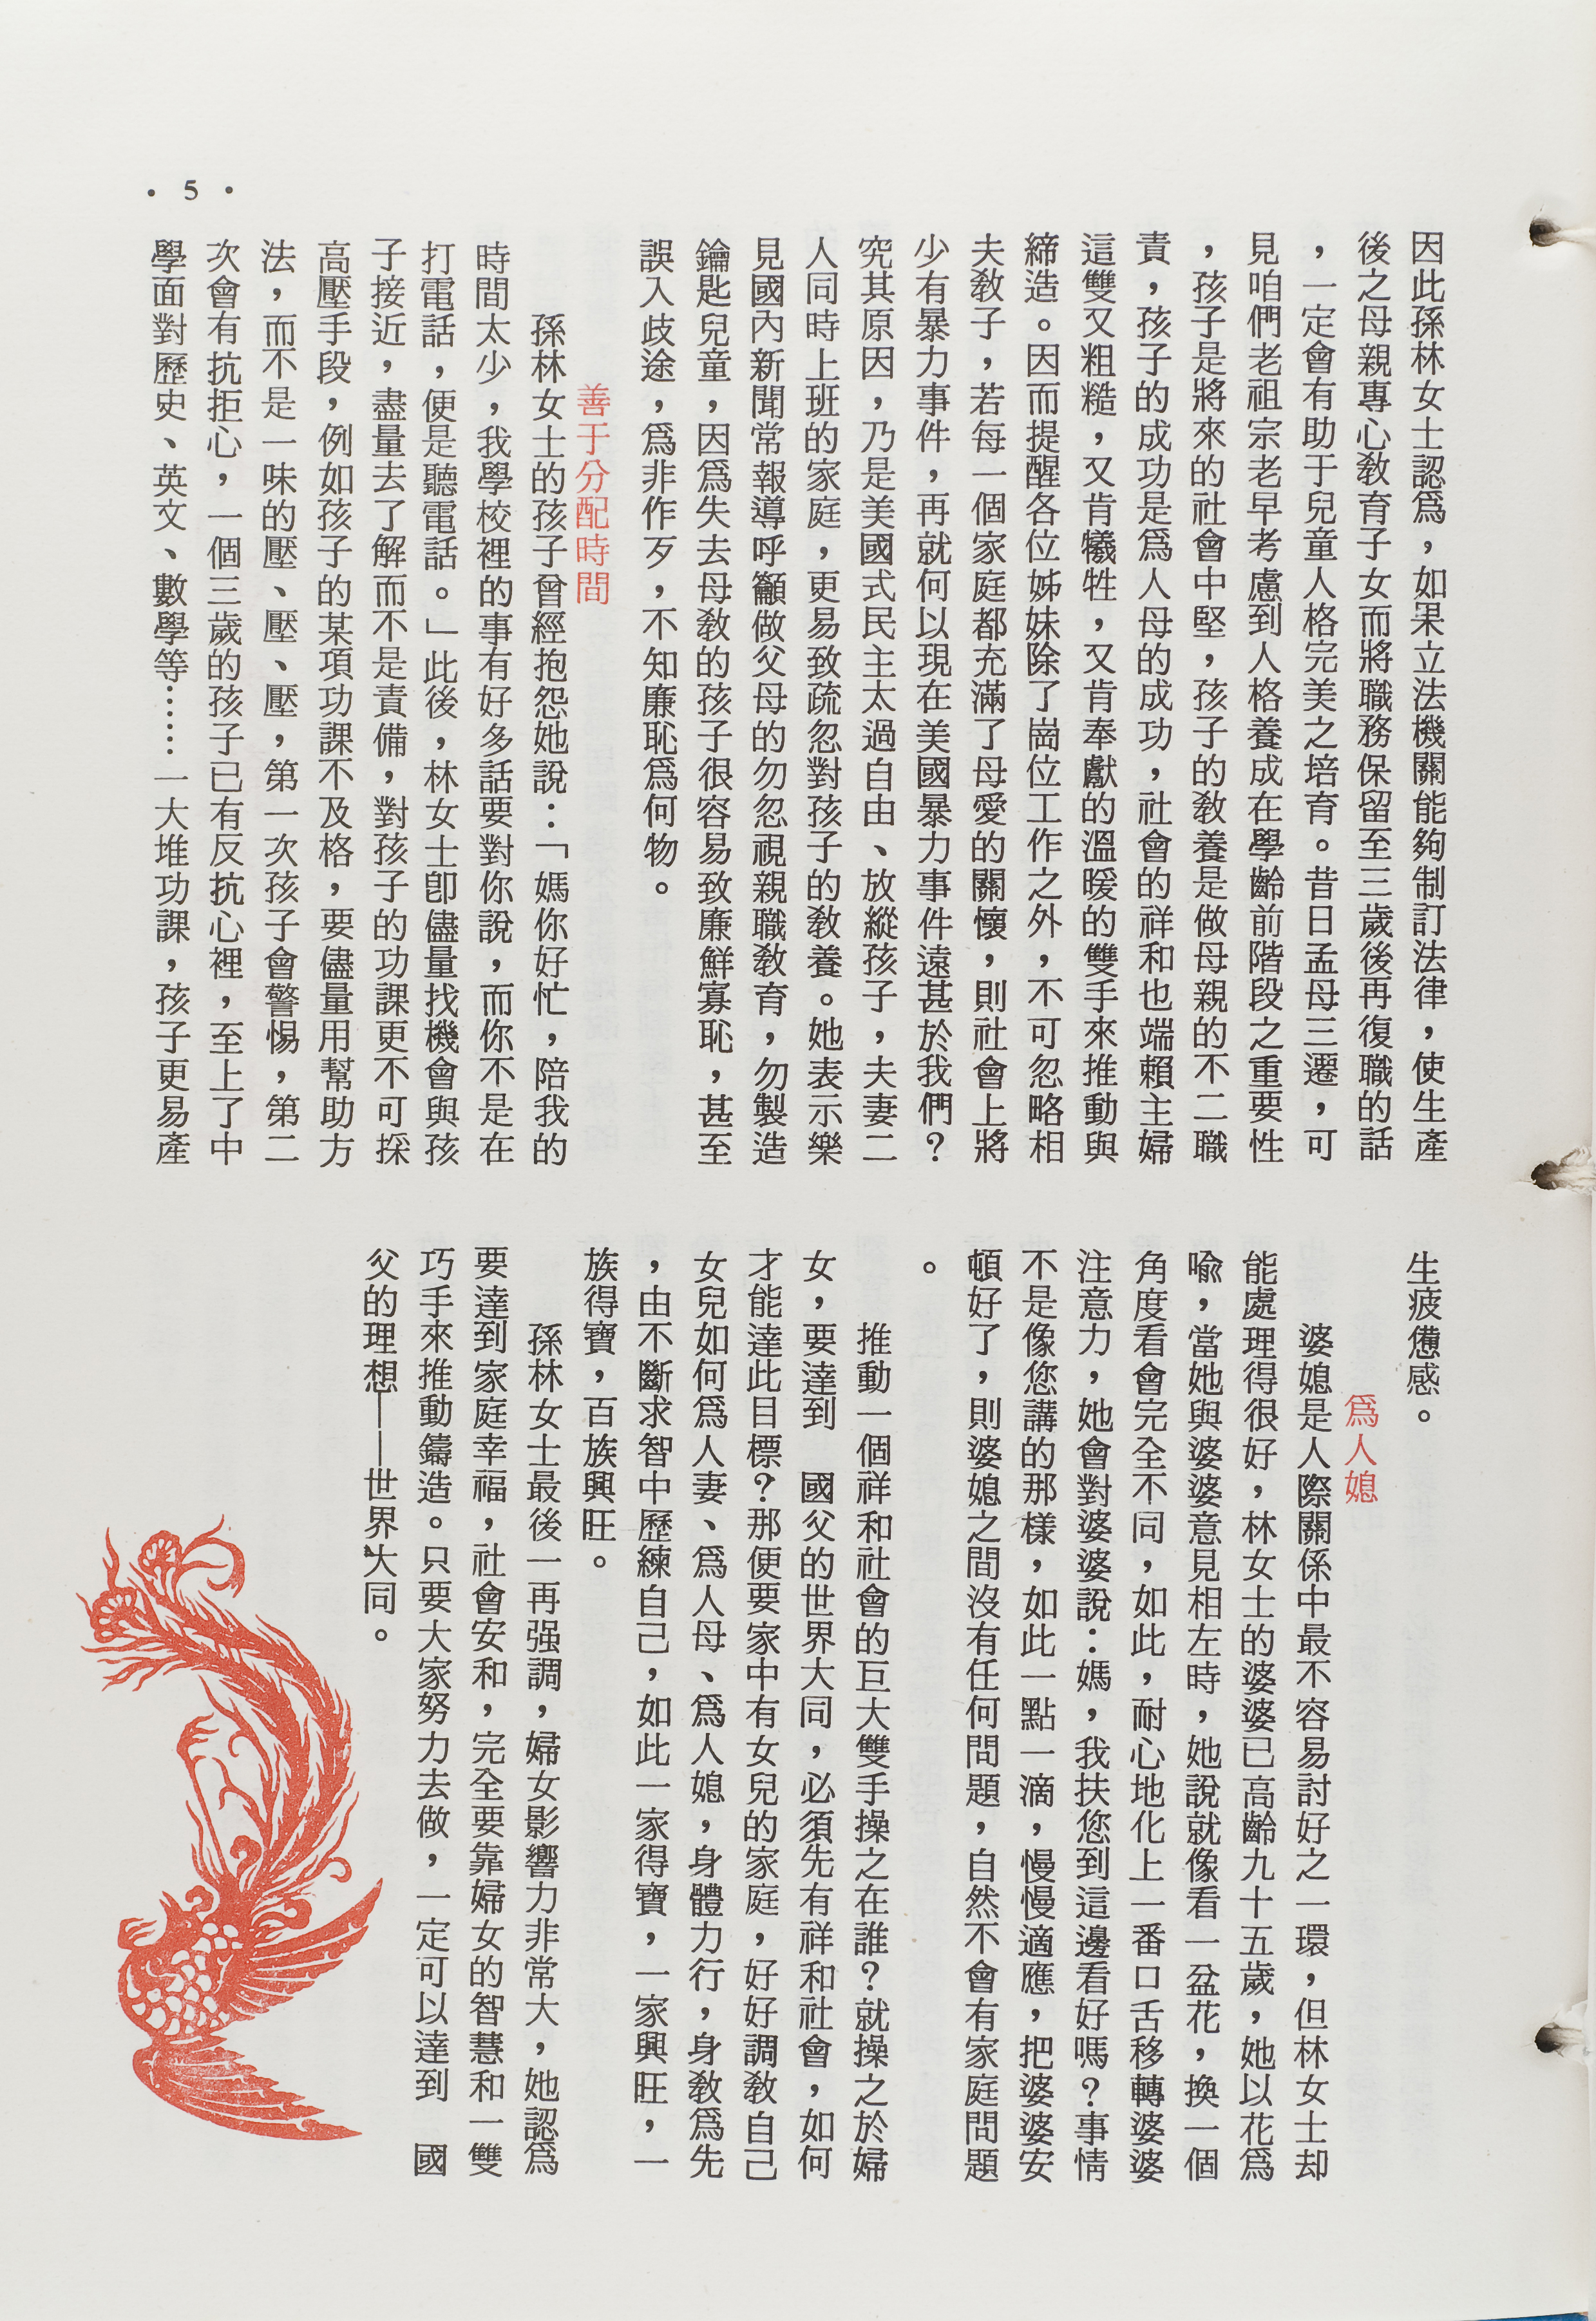 · 5 ·
因此孫林女士認爲，如果立法機關能夠制訂法律，使生產
後之母親專心教育子女而將職務保留至三歲後再復職的話
，一定會有助于兒童人格完美之培育。昔日孟母三遷，可
見咱們老祖宗老早考慮到人格養成在學齡前階段之重要性
，孩子是將來的社會中堅，孩子的教養是做母親的不二職
責，孩子的成功是爲人母的成功，社會的祥和也端賴主婦
這雙又粗糙，又肯犧牲，又肯奉獻的溫暖的雙手來推動與
締造。因而提醒各位姊妹除了崗位工作之外，不可忽略相
夫教子，若每一個家庭都充滿了母愛的關懷，則社會上將
少有暴力事件，再就何以現在美國暴力事件遠甚於我們？
究其原因，乃是美國式民主太過自由、放縱孩子，夫妻二
人同時上班的家庭，更易致疏忽對孩子的教養。她表示樂
見國內新聞常報導呼籲做父母的勿忽視親職教育，勿製造
鑰匙兒童，因爲失去母教的孩子很容易致廉鮮寡恥，甚至
誤入歧途，爲非作歹，不知廉恥爲何物。
善于分配時間
孫林女士的孩子曾經抱怨她說：「媽你好忙，陪我的
時間太少，我學校裡的事有好多話要對你說，而你不是在
打電話，便是聽電話。」此後，林女士卽儘量找機會與孩
子接近，盡量去了解而不是責備，對孩子的功課更不可採
高壓手段，例如孩子的某項功課不及格，要儘量用幫助方
法，而不是一味的壓、壓、壓，第一次孩子會警惕，第二
次會有抗拒心，一個三歲的孩子已有反抗心裡，至上了中
學面對歷史、英文、數學等……一大堆功課，孩子更易產
生疲憊感。
爲人媳
婆媳是人際關係中最不容易討好之一環，但林女士却
能處理得很好，林女士的婆婆已高齡九十五歲，她以花爲
喩，當她與婆婆意見相左時，她說就像看一盆花，換一個
角度看會完全不同，如此，耐心地化上一番口舌移轉婆婆
注意力，她會對婆婆說：媽，我扶您到這邊看好嗎？事情
不是像您講的那樣，如此一點一滴，慢慢適應，把婆婆安
頓好了，則婆媳之間沒有任何問題，自然不會有家庭問題
。
推動一個祥和社會的巨大雙手操之在誰？就操之於婦
女，要達到　國父的世界大同，必須先有祥和社會，如何
才能達此目標？那便要家中有女兒的家庭，好好調教自己
女兒如何爲人妻、爲人母、爲人媳，身體力行，身教爲先
，由不斷求智中歷練自己，如此一家得寶，一家興旺，一
族得寶，百族興旺。
孫林女士最後一再强調，婦女影響力非常大，她認爲
要達到家庭幸福，社會安和，完全要靠婦女的智慧和一雙
巧手來推動鑄造。只要大家努力去做，一定可以達到　國
父的理想——世界大同。